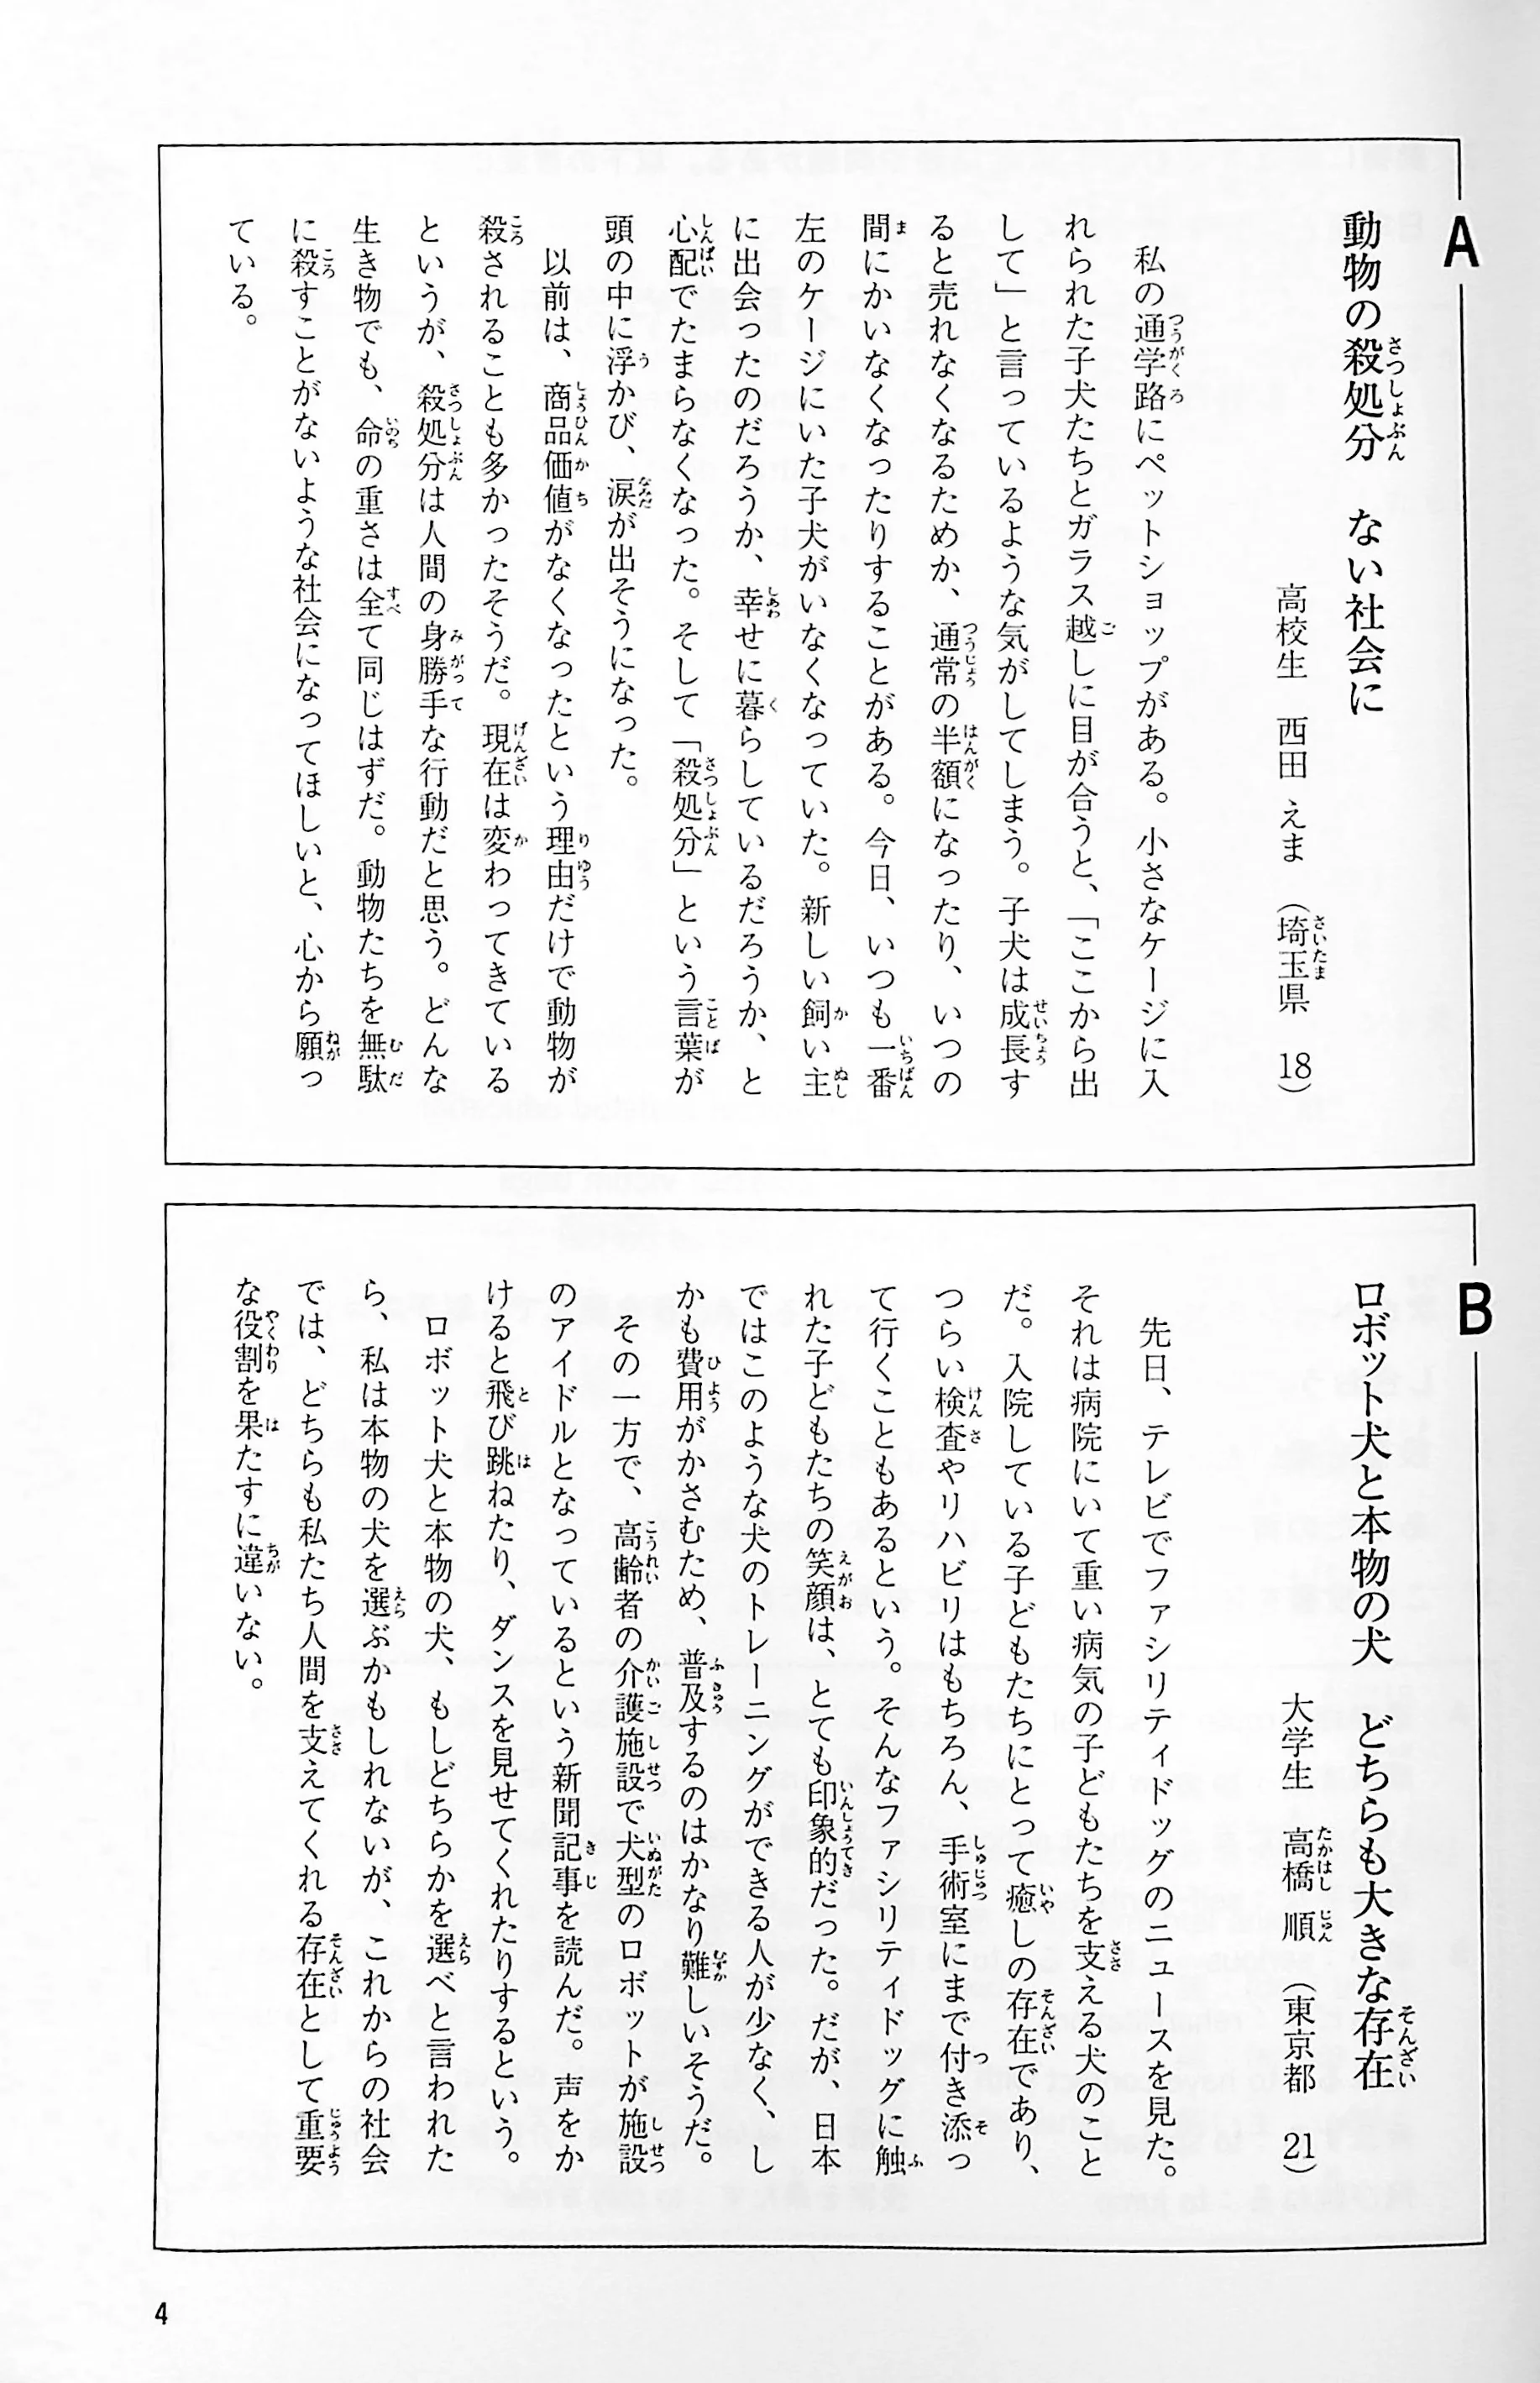 A
動物の殺処分　ない社会に
高校生　西田 えま　（埼玉県　18）
私の通学路にペットショップがある。小さなケージに入
れられた子犬たちとガラス越しに目が合うと、「ここから出
して」と言っているような気がしてしまう。子犬は成長す
ると売れなくなるためか、通常の半額になったり、いつの
間にかいなくなったりすることがある。今日、いつも一番
左のケージにいた子犬がいなくなっていた。新しい飼い主
に出会ったのだろうか、幸せに暮らしているだろうか、と
心配でたまらなくなった。そして「殺処分」という言葉が
頭の中に浮かび、涙が出そうになった。
以前は、商品価値がなくなったという理由だけで動物が
殺されることも多かったそうだ。現在は変わってきている
というが、殺処分は人間の身勝手な行動だと思う。どんな
生き物でも、命の重さは全て同じはずだ。動物たちを無駄
に殺すことがないような社会になってほしいと、心から願っ
ている。
B
ロボット犬と本物の犬　どちらも大きな存在
大学生　高橋 順　（東京都　21）
先日、テレビでファシリティドッグのニュースを見た。
それは病院にいて重い病気の子どもたちを支える犬のこと
だ。入院している子どもたちにとって癒しの存在であり、
つらい検査やリハビリはもちろん、手術室にまで付き添っ
て行くこともあるという。そんなファシリティドッグに触
れた子どもたちの笑顔は、とても印象的だった。だが、日本
ではこのような犬のトレーニングができる人が少なく、し
かも費用がかさむため、普及するのはかなり難しいそうだ。
その一方で、高齢者の介護施設で犬型のロボットが施設
のアイドルとなっているという新聞記事を読んだ。声をか
けると飛び跳ねたり、ダンスを見せてくれたりするという。
ロボット犬と本物の犬、もしどちらかを選べと言われた
ら、私は本物の犬を選ぶかもしれないが、これからの社会
では、どちらも私たち人間を支えてくれる存在として重要
な役割を果たすに違いない。
4